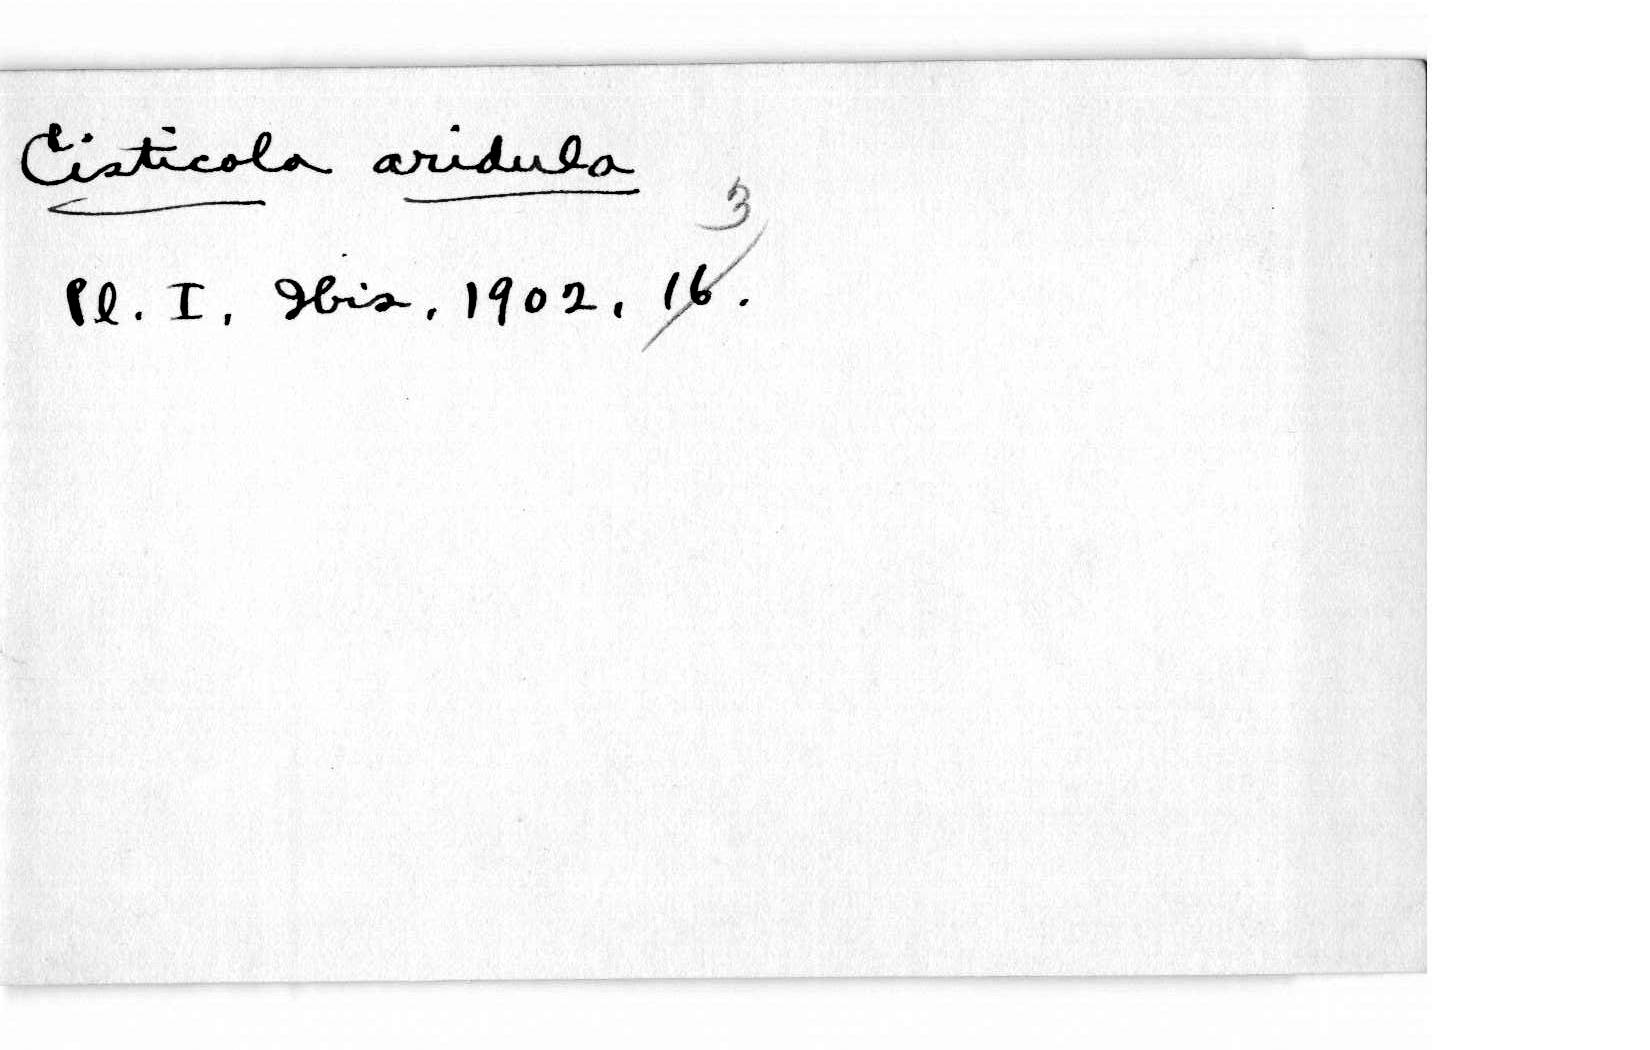 Cisticola aridula
3
Pl. I, Ibis, 1902, 16.